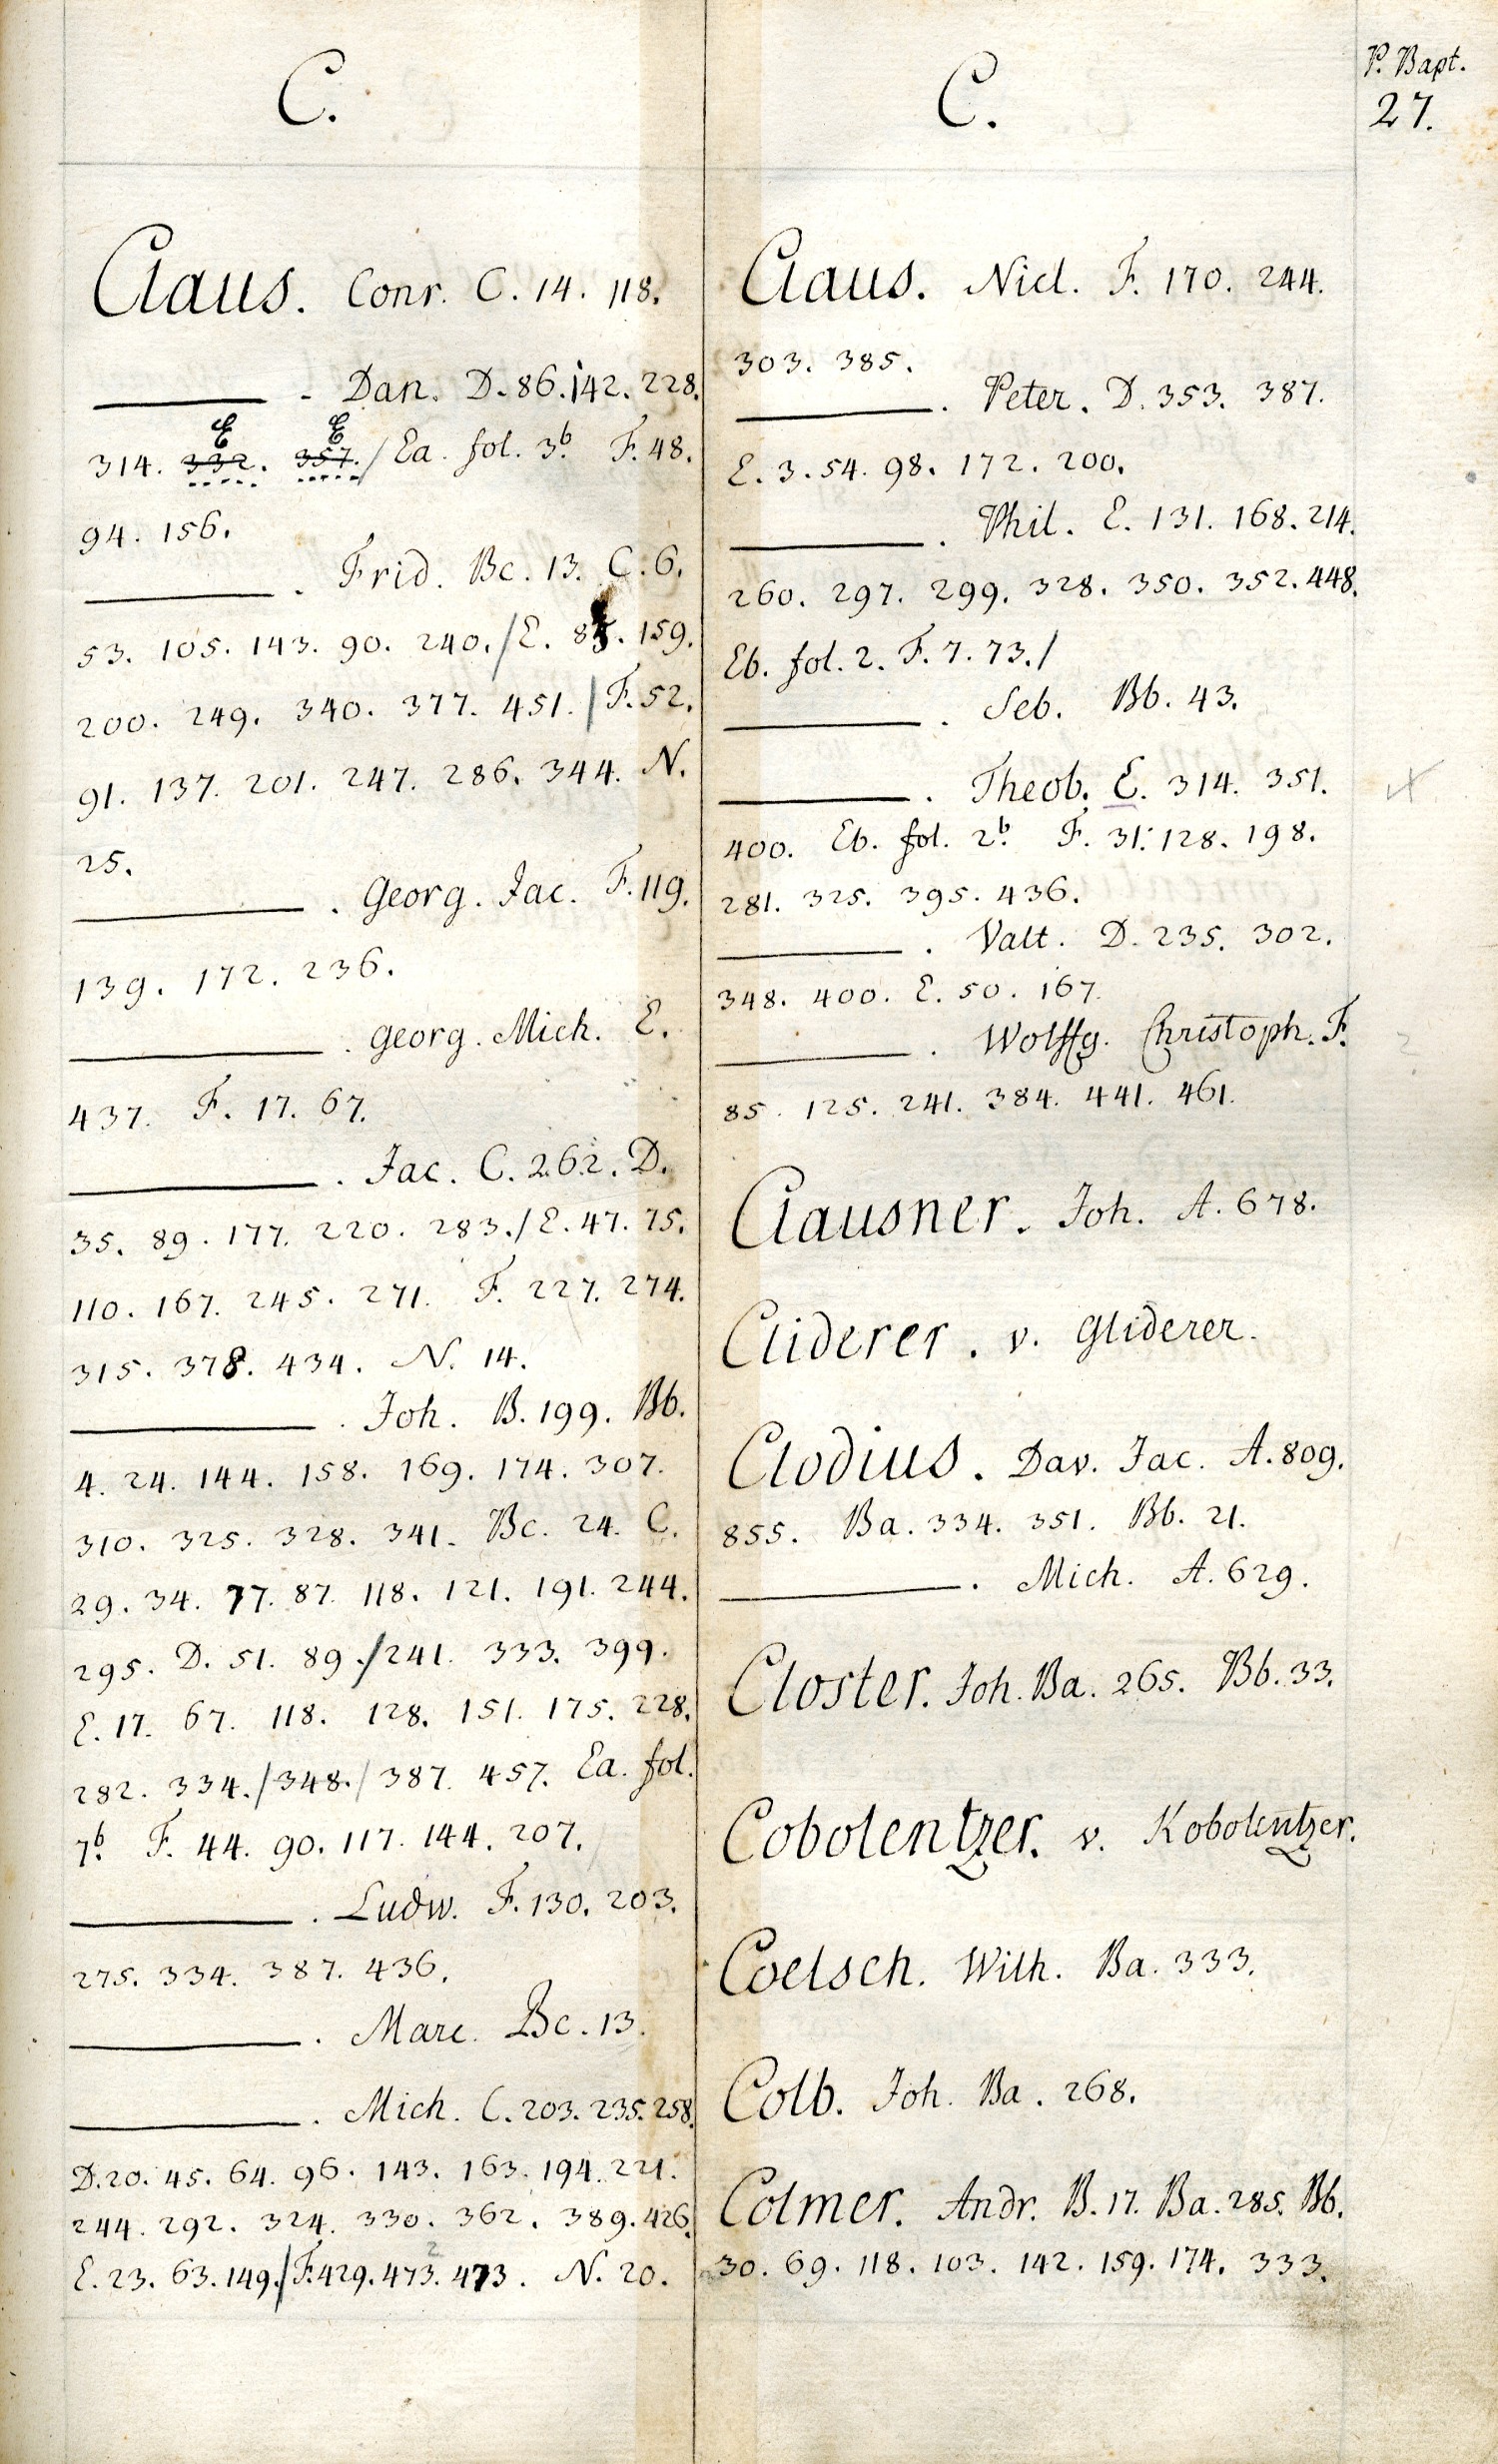 C.
Claus. Conr. C. 14. 118.
——— . Dan. D. 86. 142. 228.
E E
314. 332. 357. / Ea. fol. 3b. F. 48.
94. 156.
——— . Frid. Bc. 13. C. 6.
53. 105. 143. 90. 240. / E. 85. 159.
200. 249. 340. 377. 451. / F. 52.
91. 137. 201. 247. 286. 344. N.
25.
——— . Georg. Jac. F. 119.
139. 172. 236.
——— . Georg. Mich. E.
437. F. 17. 67.
——— . Jac. C. 262. D.
35. 89. 177. 220. 283. / E. 47. 75.
110. 167. 245. 271. F. 227. 274.
315. 378. 434. N. 14.
——— . Joh. B. 199. Bb.
4. 24. 144. 158. 169. 174. 307.
310. 325. 328. 341. Bc. 24. C.
29. 34. 77. 87. 118. 121. 191. 244.
295. D. 51. 89. / 241. 333. 399.
E. 17. 67. 118. 128. 151. 175. 228.
282. 334. / 348. / 387. 457. Ea. fol.
7b. F. 44. 90. 117. 144. 207.
——— . Ludw. F. 130. 203.
275. 334. 387. 436.
——— . Marc. Bc. 13.
——— . Mich. C. 203. 235. 258.
D. 20. 45. 64. 96. 143. 163. 194. 221.
244. 292. 324. 330. 362. 389. 426.
2
E. 23. 63. 149. / F. 429. 473. 473. N. 20.
C.
P. Bapt.
27.
Claus. Nicl. F. 170. 244.
303. 385.
——— . Peter. D. 353. 387.
E. 3. 54. 98. 172. 200.
——— . Phil. E. 131. 168. 214.
260. 297. 299. 328. 350. 352. 448.
Eb. fol. 2. F. 7. 73. /
——— . Seb. Bb. 43.
——— . Theob. E. 314. 351.
400. Eb. fol. 2b. F. 31. 128. 198.
281. 325. 395. 436.
——— . Valt. D. 235. 302.
348. 400. E. 50. 167.
——— . Wolffg. Christoph. F.
85. 125. 241. 384. 441. 461.
Clausner. Joh. A. 678.
Cliderer. v. Gliderer.
Clodius. Dav. Jac. A. 809.
855. Ba. 334. 351. Bb. 21.
——— . Mich. A. 629.
Closter. Joh. Ba. 265. Bb. 33.
Cobolentzer. v. Kobolentzer.
Coelsch. Wilh. Ba. 333.
Colb. Joh. Ba. 268.
Colmer. Andr. B. 17. Ba. 285. Bb.
30. 69. 118. 103. 142. 159. 174. 333.